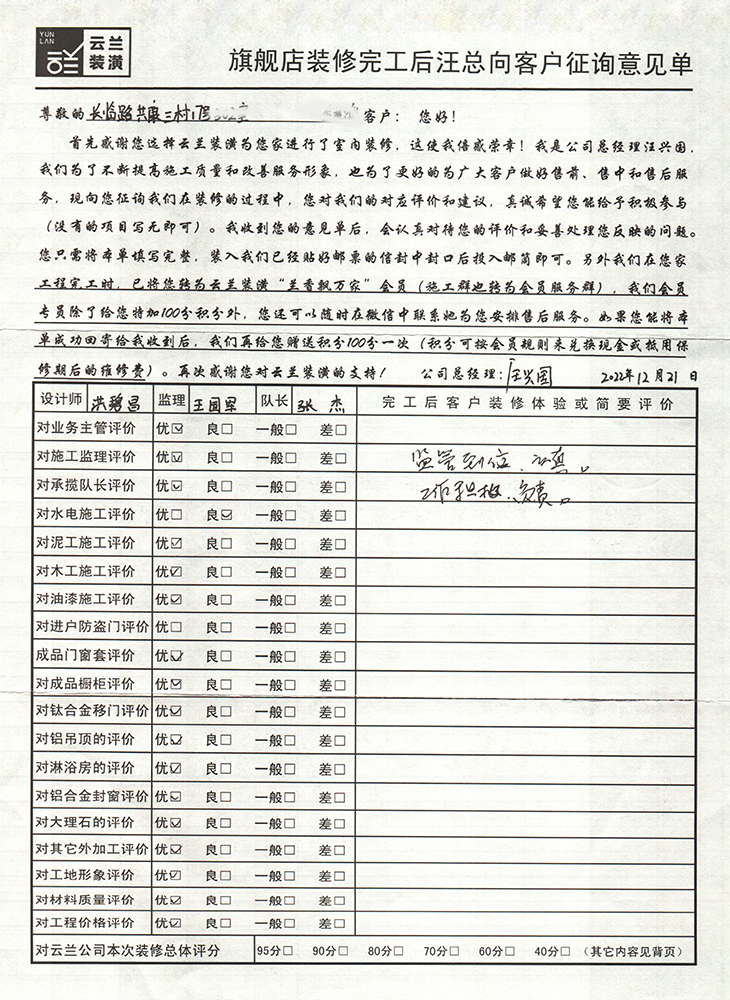 YUN LAN
云兰装潢
旗舰店装修完工后汪总向客户征询意见单
尊敬的长临路共康三村17号302室 客户：您好！
首先感谢您选择云兰装潢为您家进行了室内装修，这使我倍感荣幸！我是公司总经理汪兴国，
我们为了不断提高施工质量和改善服务形象，也为了更好的为广大客户做好售前、售中和售后服
务，现向您征询我们在装修的过程中，您对我们的对应评价和建议，真诚希望您能给予积极参与
（没有的项目写无即可）。我收到您的意见单后，会认真对待您的评价和妥善处理您反映的问题。
您只需将本单填写完整，装入我们已经贴好邮票的信封中封口后投入邮筒即可。另外我们在您家
工程完工时，已将您转为云兰装潢“兰香飘万家”会员（施工群也转为会员服务群），我们会员
专员除了给您特加100分积分外，您还可以随时在微信中联系她为您安排售后服务。如果您能将本
单成功回寄给我收到后，我们再给您赠送积分100分一次（积分可按会员规则来兑换现金或抵用保
修期后的维修费）。再次感谢您对云兰装潢的支持！ 公司总经理：汪兴国 2022年12月21日
设计师 洪碧昌 监理 王国军 队长 张杰 完工后客户装修体验或简要评价
对业务主管评价 优☑ 良□ 一般□ 差□
对施工监理评价 优☑ 良□ 一般□ 差□ 监管到位、认真。
对承揽队长评价 优☑ 良□ 一般□ 差□ 工作积极、负责。
对水电施工评价 优□ 良☑ 一般□ 差□
对泥工施工评价 优☑ 良□ 一般□ 差□
对木工施工评价 优☑ 良□ 一般□ 差□
对油漆施工评价 优☑ 良□ 一般□ 差□
对进户防盗门评价 优□ 良□ 一般□ 差□
成品门窗套评价 优☑ 良□ 一般□ 差□
对成品橱柜评价 优☑ 良□ 一般□ 差□
对钛合金移门评价 优☑ 良□ 一般□ 差□
对铝吊顶的评价 优☑ 良□ 一般□ 差□
对淋浴房的评价 优☑ 良□ 一般□ 差□
对铝合金封窗评价 优☑ 良□ 一般□ 差□
对大理石的评价 优☑ 良□ 一般□ 差□
对其它外加工评价 优☑ 良□ 一般□ 差□
对工地形象评价 优☑ 良□ 一般□ 差□
对材料质量评价 优☑ 良□ 一般□ 差□
对工程价格评价 优☑ 良□ 一般□ 差□
对云兰公司本次装修总体评分 95分□ 90分□ 80分□ 70分□ 60分□ 40分□ （其它内容见背页）